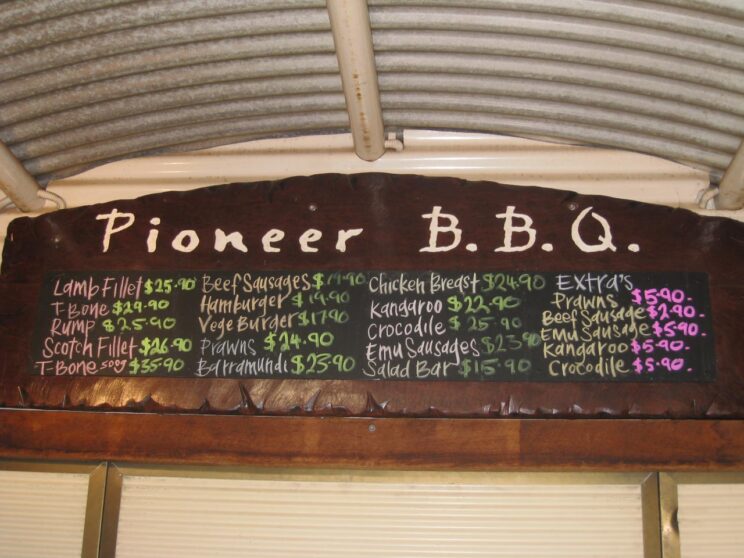 Pioneer B.B.Q.
Lamb Fillet $25.90
T-Bone $29.90
Rump $25.90
Scotch Fillet $26.90
T-Bone 500g $35.90
Beef Sausages $19.90
Hamburger $19.90
Vege Burger $17.90
Prawns $24.90
Barramundi $23.90
Chicken Breast $24.90
Kangaroo $22.90
Crocodile $25.90
Emu Sausages $23.90
Salad Bar $15.90
Extra's
Prawns $5.90.
Beef Sausage $2.90.
Emu Sausage $5.90.
Kangaroo $5.90.
Crocodile $5.90.